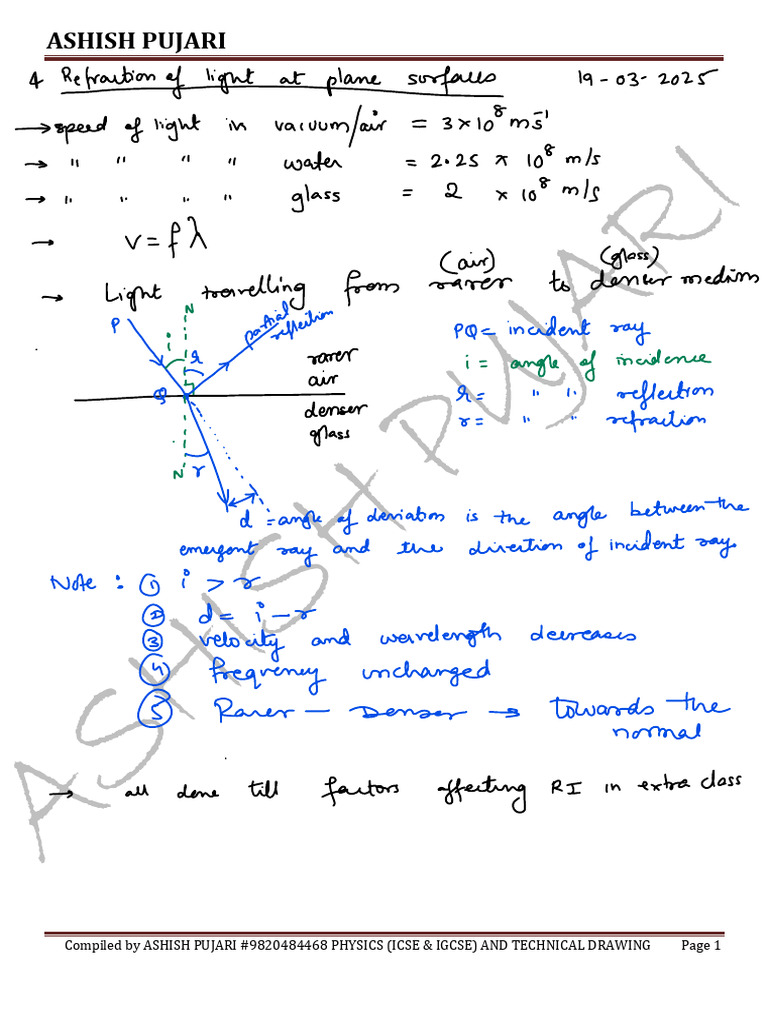 ASHISH PUJARI
4 Refraction of light at plane surfaces 19-03-2025
→ speed of light in vacuum/air = 3 x 10⁸ ms⁻¹
→ " " " " water = 2.25 x 10⁸ m/s
→ " " " " glass = 2 x 10⁸ m/s
→ v = fλ
(air) (glass)
→ Light travelling from rarer to denser medium
N
P
i
r
partial reflection
rarer
air
Q
denser
glass
N
r
PQ = incident ray
i = angle of incidence
r = " " reflection
r = " " refraction
d = angle of deviation is the angle between the
emergent ray and the direction of incident ray.
Note : ① i > r
② d = i - r
③ velocity and wavelength decreases
④ frequency unchanged
⑤ Rarer - Denser → towards the
normal
→ all done till factors affecting RI in extra class
ASHISH PUJARI
Compiled by ASHISH PUJARI #9820484468 PHYSICS (ICSE & IGCSE) AND TECHNICAL DRAWING Page 1